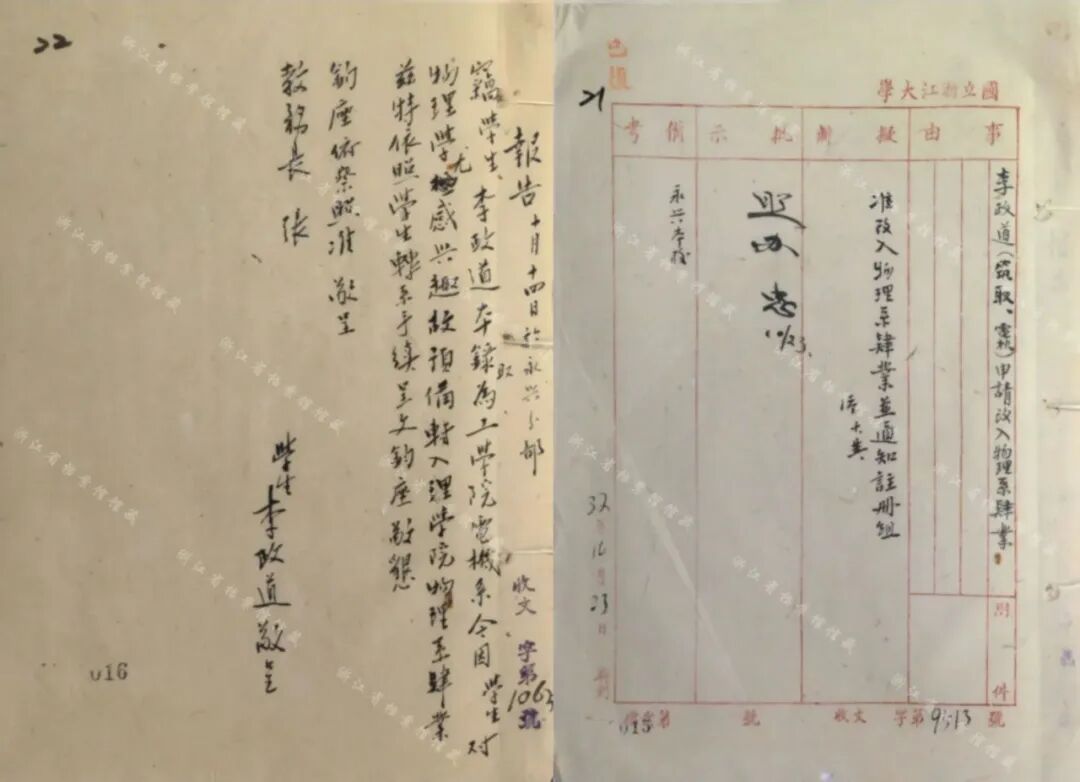 22
報告 十月十四日於永興分部
竊學生李政道本錄取為工學院電機系今因學生对
物理學尤感兴趣故預備轉入理學院物理系肄業
茲特依照學生轉系手續呈文鈞座敬懇
鈞座俯察照准 敬呈
教務長 張
學生 李政道敬呈
收文 字第1063號
016
21
國立浙江大學
事由
擬辦
批示
備考
李政道(筑取、電機)申請改入物理系肄業
附件
准改入物理系肄業並通知註冊組
照办
10/23
永兴本校
32年10月23日
收文 字第9513號
浙江省档案馆馆藏